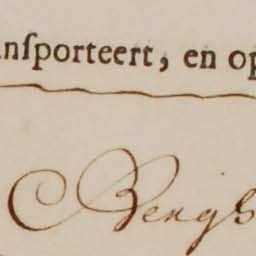 nſporteert, en op
Bergs